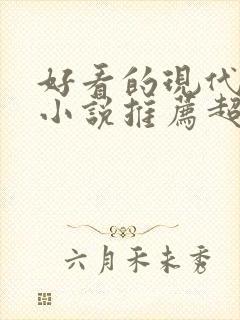 好看的现代
小説推薦超
六月禾未秀